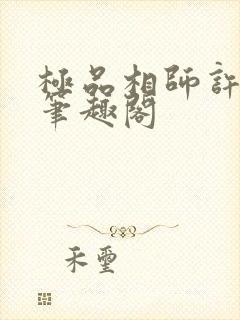 極品相師許
筆趣閣
禾璽